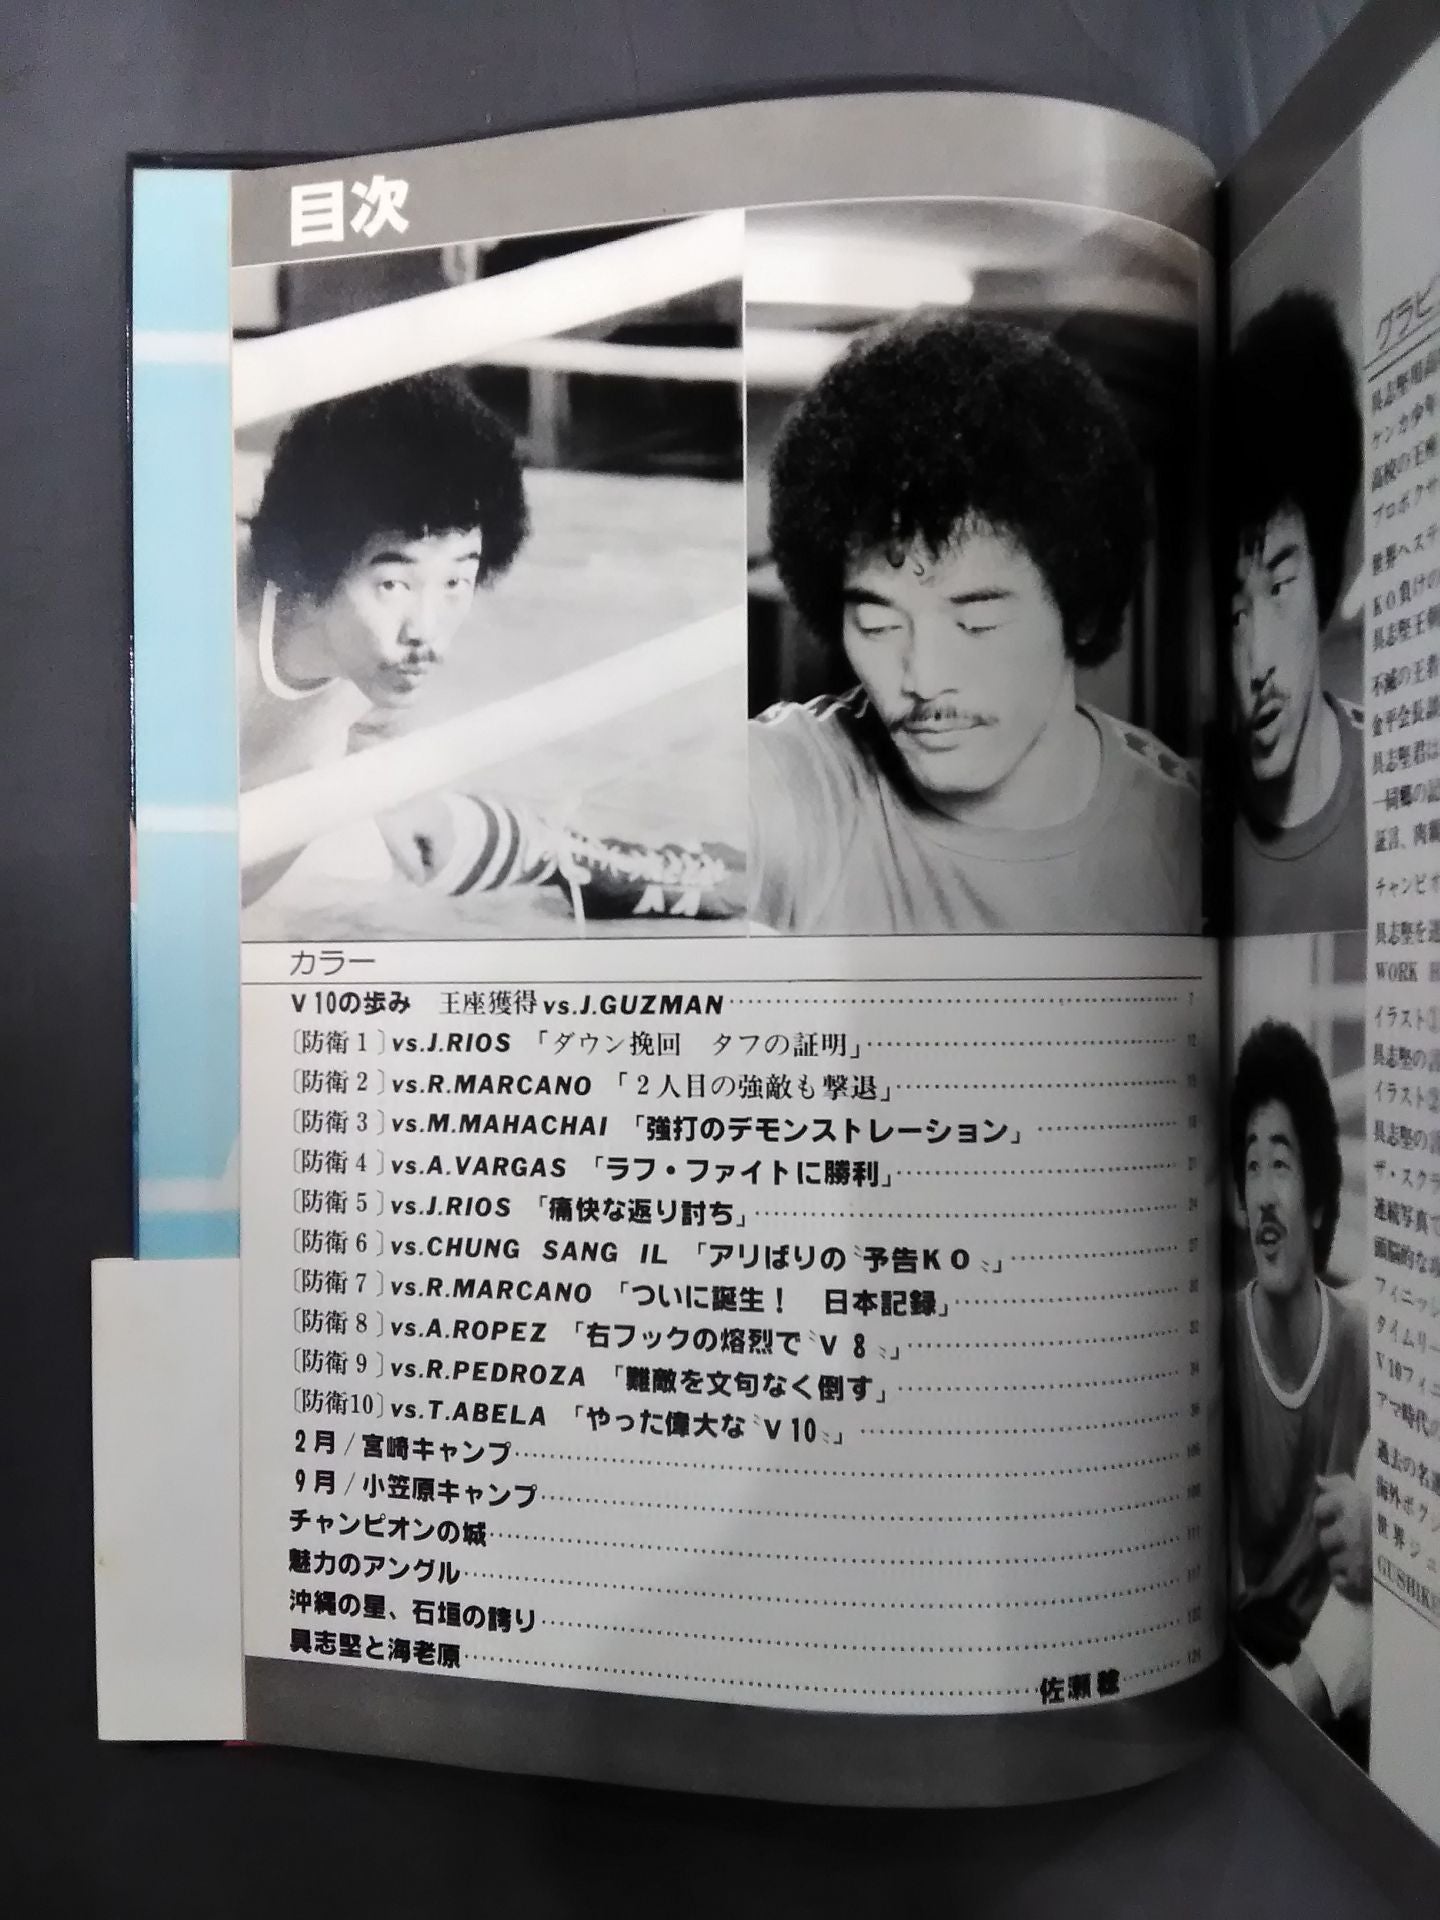 目次
カラー
V10の歩み 王座獲得vs.J.GUZMAN 7
〔防衛1〕vs.J.RIOS「ダウン挽回 タフの証明」 12
〔防衛2〕vs.R.MARCANO「2人目の強敵も撃退」
〔防衛3〕vs.M.MAHACHAI「強打のデモンストレーション」
〔防衛4〕vs.A.VARGAS「ラフ・ファイトに勝利」 21
〔防衛5〕vs.J.RIOS「痛快な返り討ち」 24
〔防衛6〕vs.CHUNG SANG IL「アリばりの〝予告KO〟」 27
〔防衛7〕vs.R.MARCANO「ついに誕生! 日本記録」
〔防衛8〕vs.A.ROPEZ「右フックの熔烈で〝V8〟」
〔防衛9〕vs.R.PEDROZA「難敵を文句なく倒す」 34
〔防衛10〕vs.T.ABELA「やった偉大な〝V10〟」
2月/宮崎キャンプ
9月/小笠原キャンプ
チャンピオンの城 111
魅力のアングル 117
沖縄の星、石垣の誇り
具志堅と海老原 佐瀬稔
グラビ
具志堅用高
ケンカ少年
高校の王座
プロボクサ
世界へステ
KO負けの
具志堅王朝
不滅の王者
金平会長談
具志堅君は
一同郷の記
証言、肉親
チャンピオ
具志堅を
WORK H
イラスト①
具志堅の言
イラスト②
具志堅の言
ザ・スクラ
連続写真で
頭脳的な
フィニッシ
タイムリー
V10フィニ
アマ時代の
過去の名選
海外ボクシ
世界ジュニ
GUSHIKE